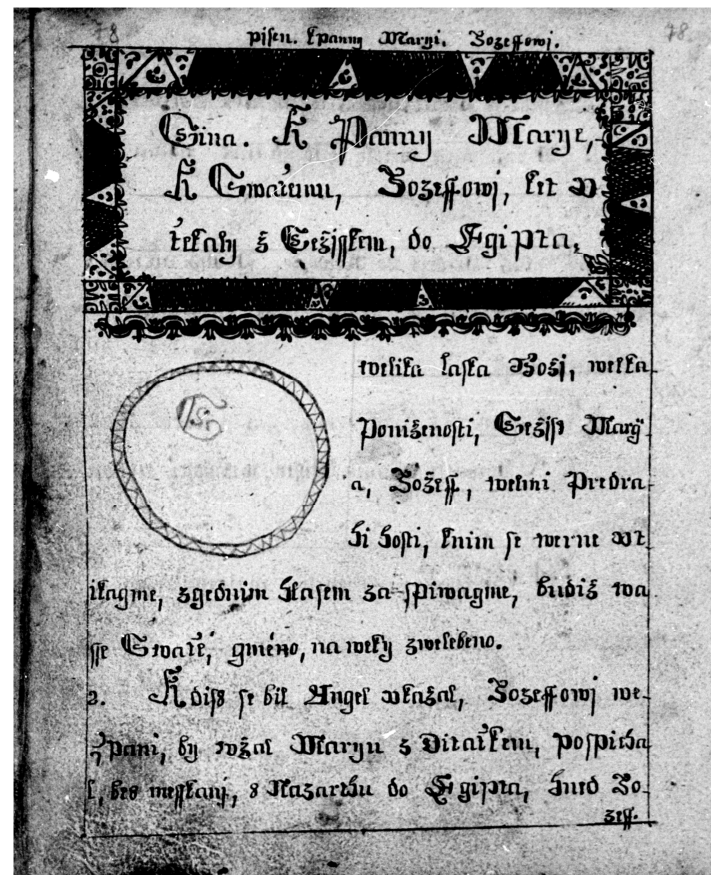 78 pisen. k panny Margi. Jozeffowj. 78.
Gina. K Panny Marye,
K Swatému, Jozeffowj, ket u
tekaly z Gežjssem, do Egipta,
welika laska Božj, welka
poniženosti, Gežjss Marÿ
a, Jožeff, welmi Predra
hi hosti, knim se werne ut
ikagme, zgednim hlasem za spiwagme, budiž wa
sse Swaté, gméno, na weky zwelebeno.
2. Kdiss se bil Angel ukazal, Jozeffowj we
spani, by wžal Maryu z Ditatkem, pospicha
l, bez messkanj, z Nazarthu do Egipta, hned Jo
zeff.